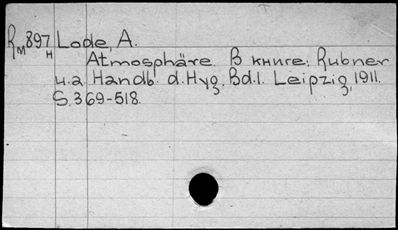 Rм897 Lode, A.
н Atmosphäre. В книге: Rubner
u.a. Handb. d. Hyg. Bd.1. Leipzig, 1911.
S. 369-518.